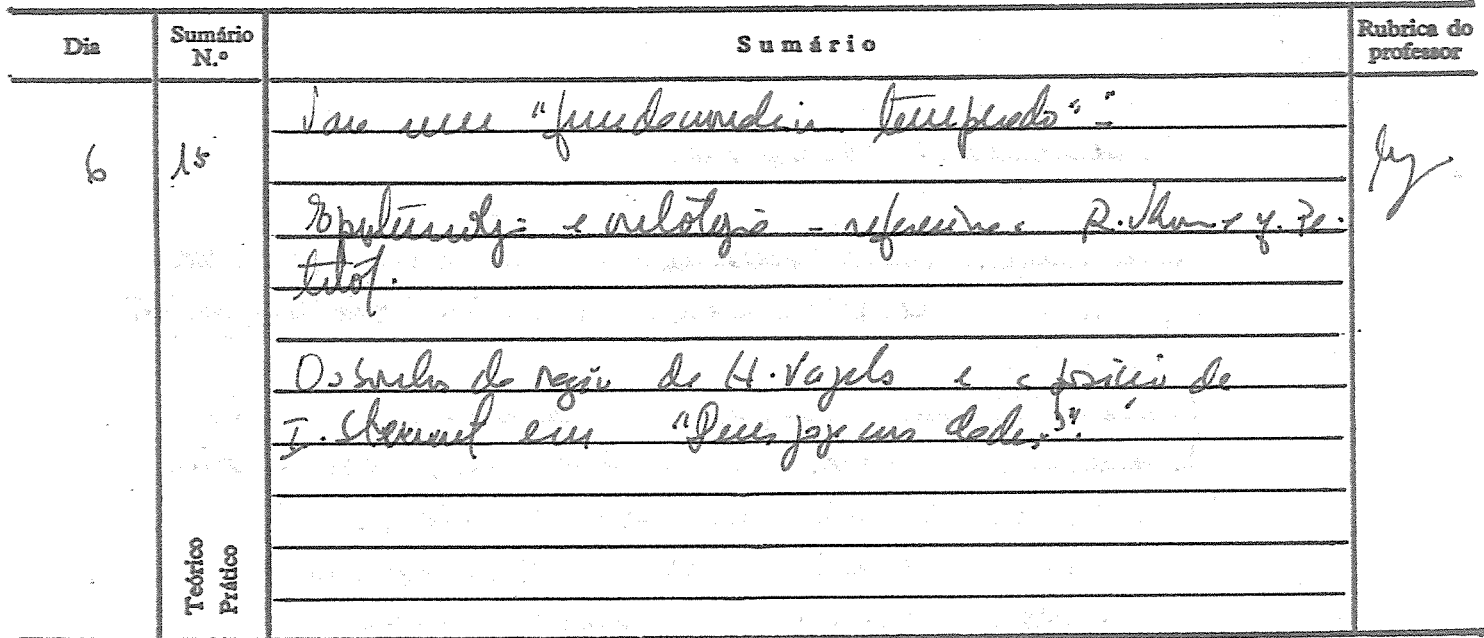 Dia
Sumário N.º
Sumário
Rubrica do professor
6
15
"fundamentalismo temperado":
Epistemologia e ontologia - referência a R. Thom e J. Pe-
titot.
Os sonhos da razão de H. Pagels e a posição de
I. Stewart em "Deus joga aos dados?".
Teórico
Prático